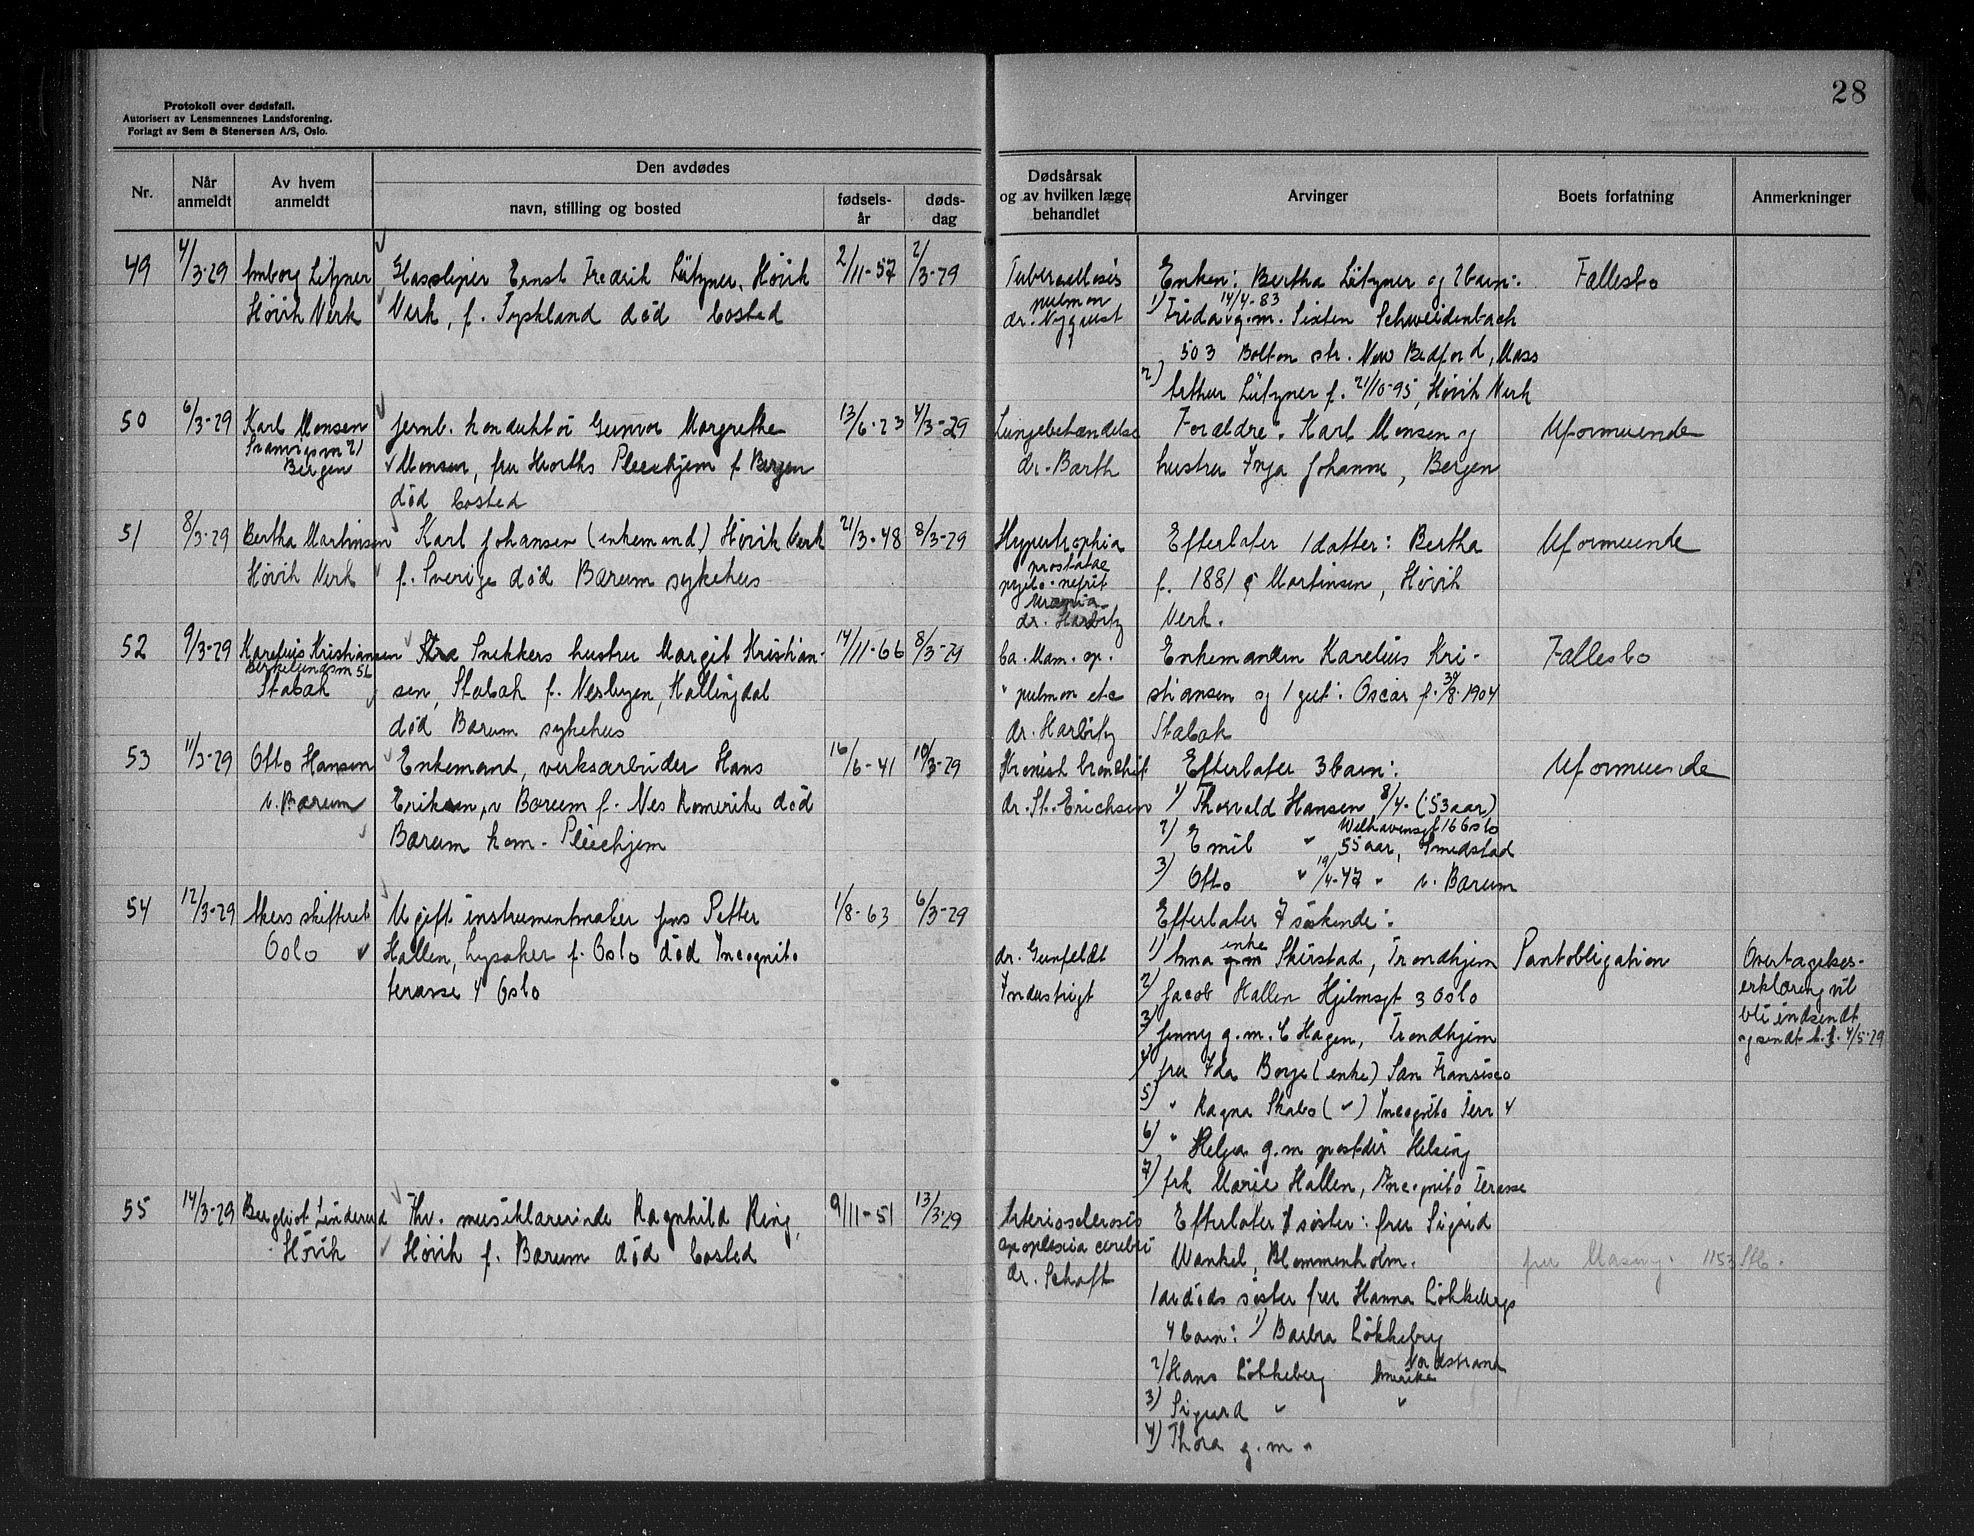 28
Protokoll over dødsfall.
Autorisert av Lensmennenes Landsforening.
Forlagt av Sem & Stenersen A/S, Oslo.
Nr.
Når anmeldt
Av hvem anmeldt
Den avdødes
navn, stilling og bosted
fødsels-år
døds-dag
Dødsårsak og av hvilken læge behandlet
Arvinger
Boets forfatning
Anmerkninger
49
4/3-29
Lützner
Høvik Verk
Glassliper Ernst Fredrik Lützner, Høvik
Verk, f. Tyskland död bosted
2/11-57
2/3-29
Tuberculosis
pulmon
dr. Nyquist
Enken: Bertha Lützner og 2 barn:
1) Frida 14/4-83 g.m. Sixten Schweidenbach
503 Bolton str. New Bedford, Mass
2) Arthur Lützner f. 21/10-95, Høvik Verk
Fallesbo
50
6/3-29
Karl Monsen
21
Bergen
Jernb. konduktör Gunvor Margrethe
Monsen, fru Hiorths Pleiehjem f. Bergen
död bosted
13/6-23
4/3-29
Lungebetændelse
dr. Barth
Forældre: Karl Monsen og
hustru Inga Johanne, Bergen
Uformuende
51
8/3-29
Bertha Martinsen
Høvik Verk
Karl Johansen (enkemand) Høvik Verk
f. Sverige död Bærum sykehus
21/3-48
8/3-29
Hypertrophia
prostatae
pyelo-nefrit
Uræmia
dr. Harbitz
Efterlater 1 datter: Bertha
f. 1881 g Martinsen, Høvik
Verk.
Uformuende
52
9/3-29
Karelius Kristiansen
Stabæk
Snekkers hustru Margit Kristian-
sen, Stabæk f. Nesbyen, Hallingdal
död Bærum sykehus
14/11-66
8/3-29
Ca. Mam. op.
" pulmon etc
dr. Harbitz
Enkemanden Karelius Kri-
stiansen og 1 gut: Oscar f. 30/8-1904
Stabæk
Fallesbo
53
11/3-29
Otto Hansen
v. Bærum
Enkemand, verksarbeider Hans
Eriksen, v Bærum f. Nes Romerike död
Bærum kom. Pleiehjem
16/6-41
10/3-29
Kronisk bronchit
dr. St. Erichsen
Efterlater 3 barn:
1) Thorvald Hansen 8/4. (53 aar)
Welhavensgt 16 Oslo
2) Emil " 55 aar, Smedstad
3) Otto " 19/4-47 " v. Bærum
Uformuende
54
12/3-29
Akers skifteret
Oslo
Ugift instrumentmaker Jens Petter
Hallen, Lysaker f. Oslo död Incognito
terasse 4 Oslo
1/8-63
6/3-29
dr. Gunfeldt
Industrigt
Efterlater 7 söskende:
1) Anna enke Skirstad, Trondhjem
2) Jacob Hallen Hjelmsgt 3 Oslo
3) Jenny g.m. C Hagen, Trondhjem
4) fru Ida Borge (enke) San Fransisco
5) " Ragna Skabo ( " ) Incognito Terr 4
6) " Helga g.m postdir Helsing
7) frk Marie Hallen, Incognito Terasse
Pantobligation
Overtagelses-
erklæring vil
bli indsendt
og sendt 4/5-29
55
14/3-29
Bergliot Linderud
Høvik
Fhv. musiklærerinde Ragnhild Ring,
Høvik f. Bærum död bosted
9/11-51
13/3-29
Arteriosclerosis
apoplexia cerebri
dr. Schaft
Efterlater 1 søster: fru Sigrid
Wankel, Blommenholm.
1 avdöds søster fru Hanna Lökkebergs
4 barn: 1) Barbra Lökkeberg
Nordstrand
2) Hans Lökkeberg Amerika
3) Sigurd " "
4) Thora g.m "
fru 1153 Stb.